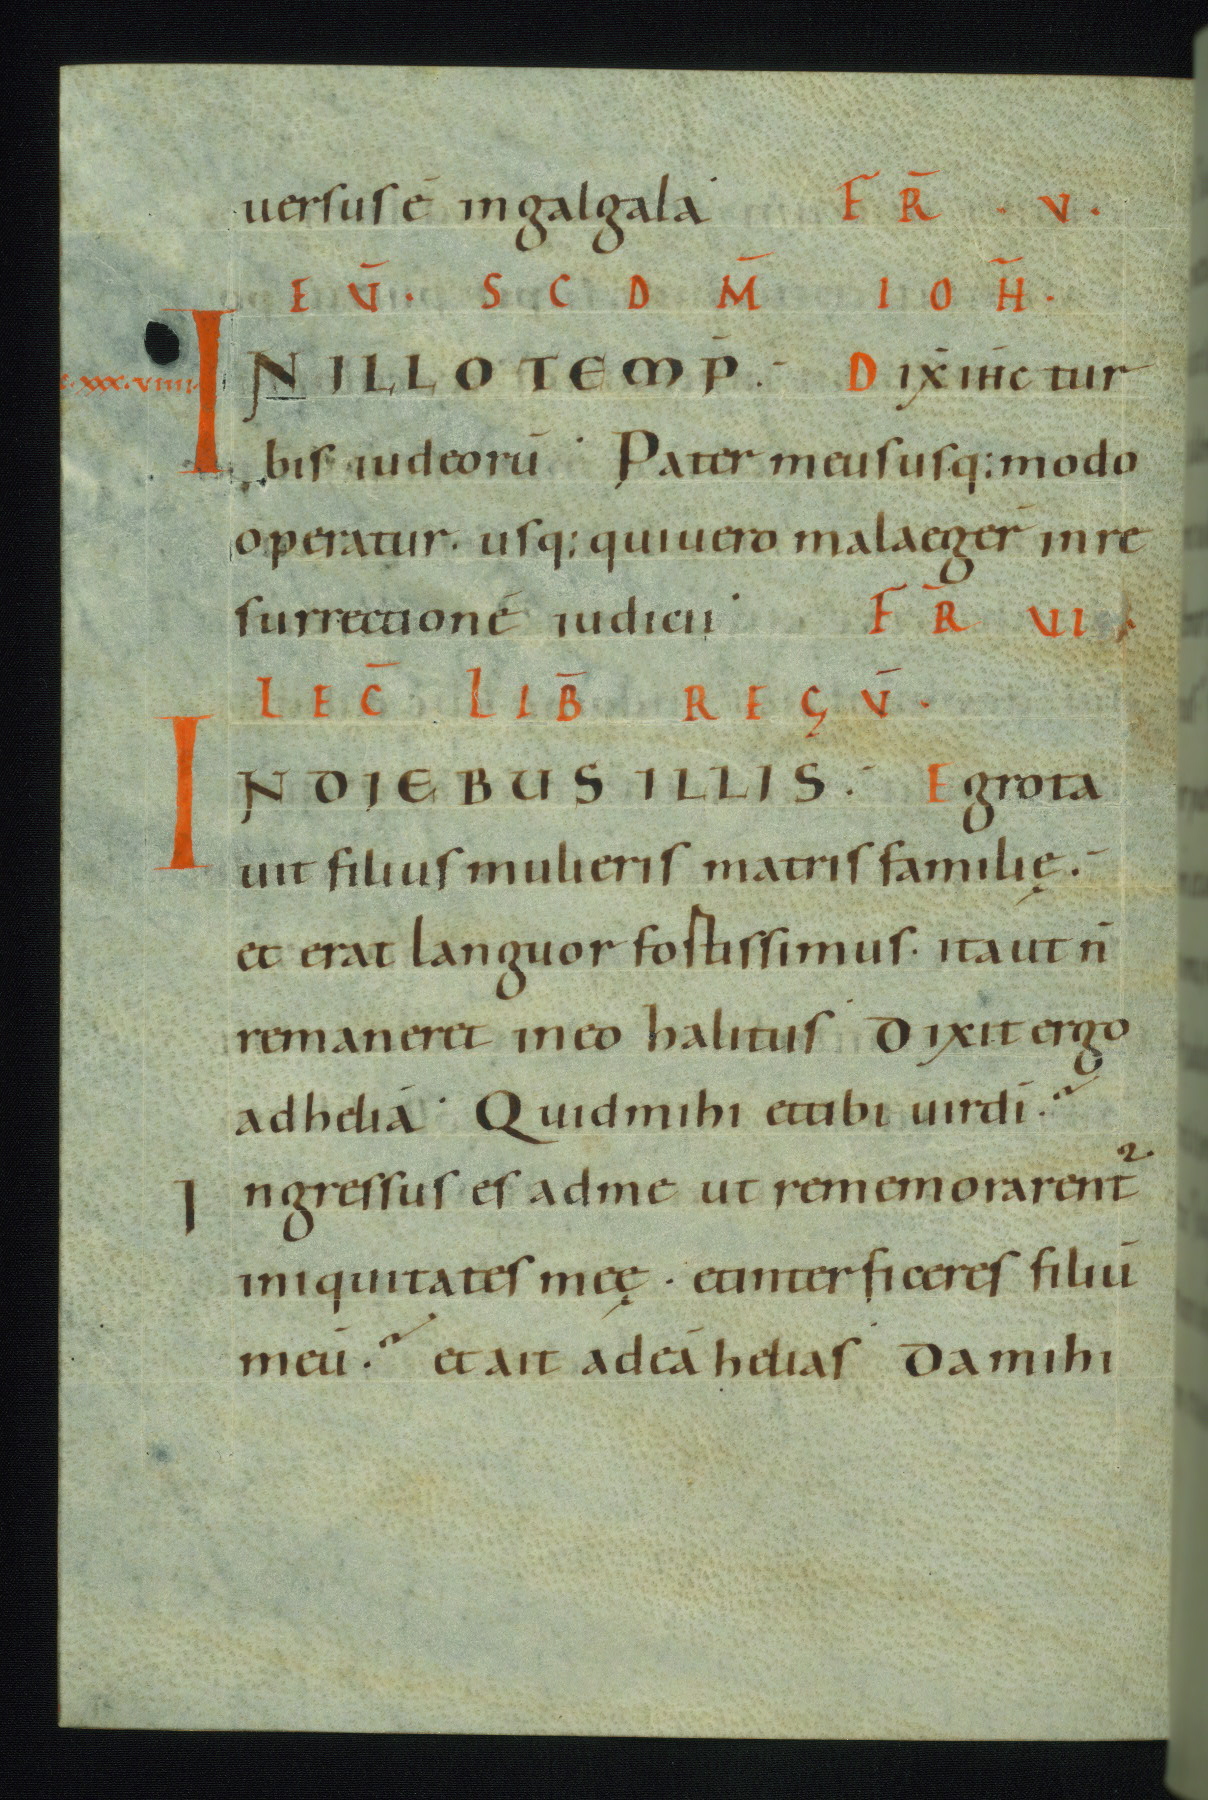 uersus ē in galgala F̄ R̄ · V ·
EV̄ · SCDM̄ IOH̄ ·
c·xxx·viiii· IN ILLO TEMP̄ · Dix̄ iħc tur
bis iudeorū · Pater meus usq; modo
operatur. usq; qui uero mala aeger̄ in re
surrectionē iudicii · F̄ R̄ VI ·
LEC̄ LIB̄ REGV̄ ·
IN DIEBUS ILLIS · Egrota
uit filius mulieris matris familię ·
et erat languor fortissimus · ita ut n̄
remaneret in eo halitus · Dixit ergo
ad heliā · Quid mihi et tibi uir dī ·
Ingressus es ad me ut rememorarent᷑
iniquitates męę · et interficeres filiū
meū · et ait ad eā helias · Da mihi